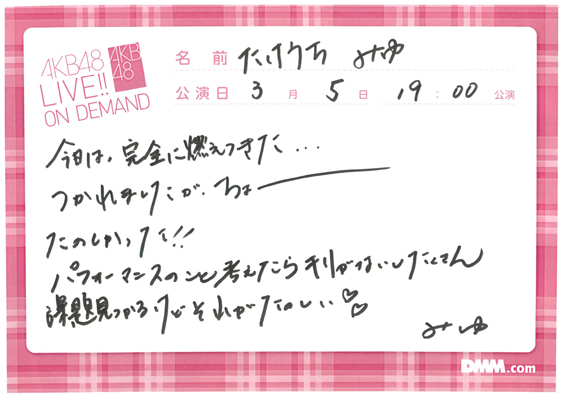 AKB48
LIVE!!
ON DEMAND
AKB
48
名前 たけうち みゆ
公演日 3月 5日 19:00 公演
今日は、完全に燃えつきた...
つかれましたが、ちょー
たのしかったく!!
パフォーマンスのこと考えたらキリがないしたくさん
課題見つかるけどそれがたのしい♡♡
みゆ
DMM.com